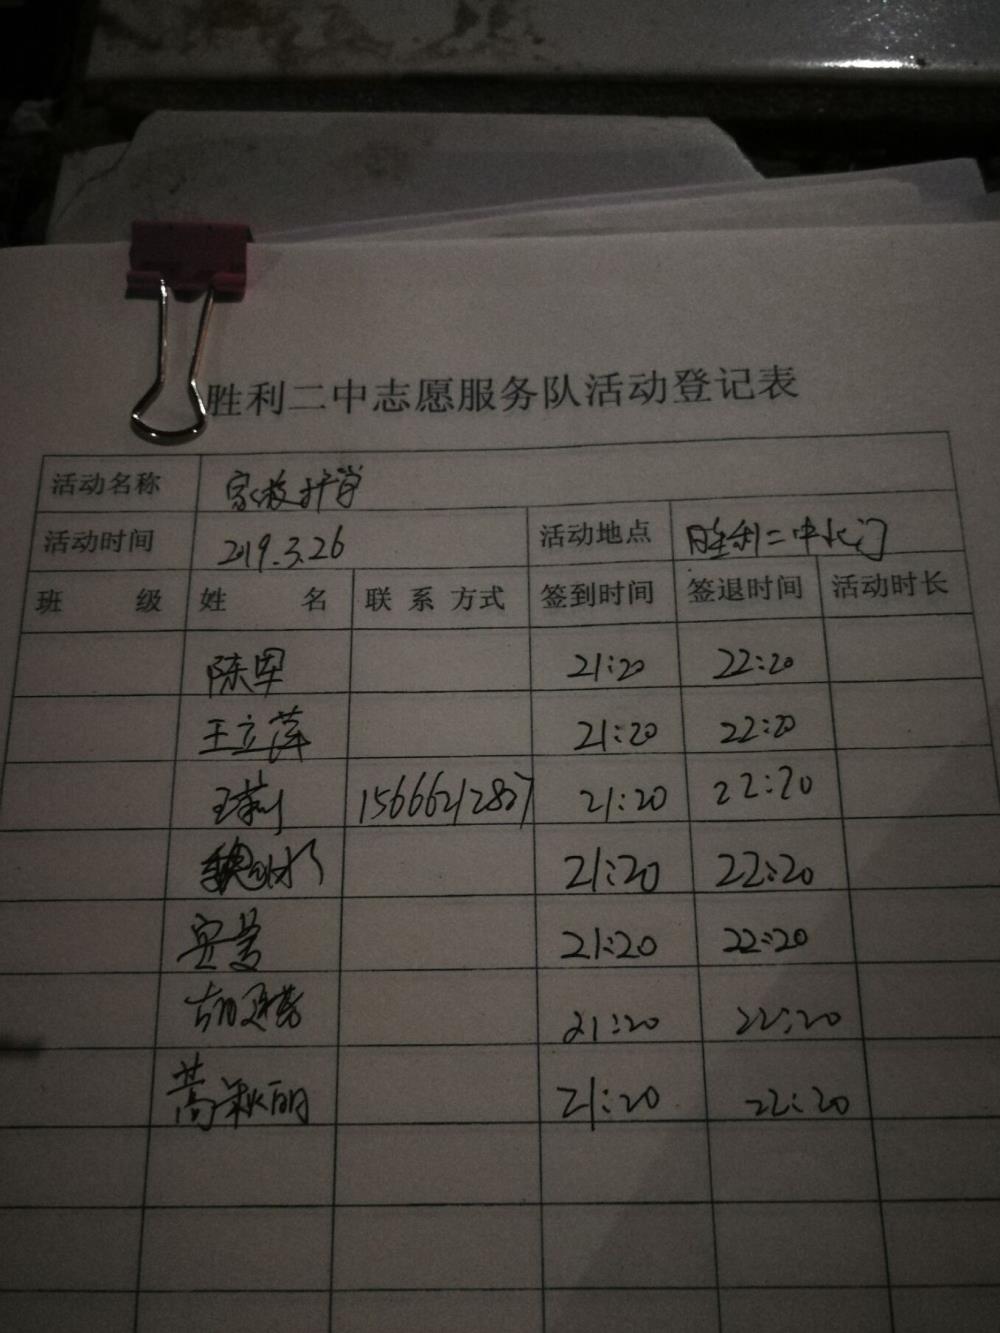 胜利二中志愿服务队活动登记表
活动名称 家校护学
活动时间 2019.3.26 活动地点 胜利二中北门
班 级 姓 名 联 系 方式 签到时间 签退时间 活动时长
陈军 21:20 22:20
王立萍 21:20 22:20
王莉 21:20 22:20
21:20 22:20
21:20 22:20
21:20 22:20
蒿秋丽 21:20 22:20